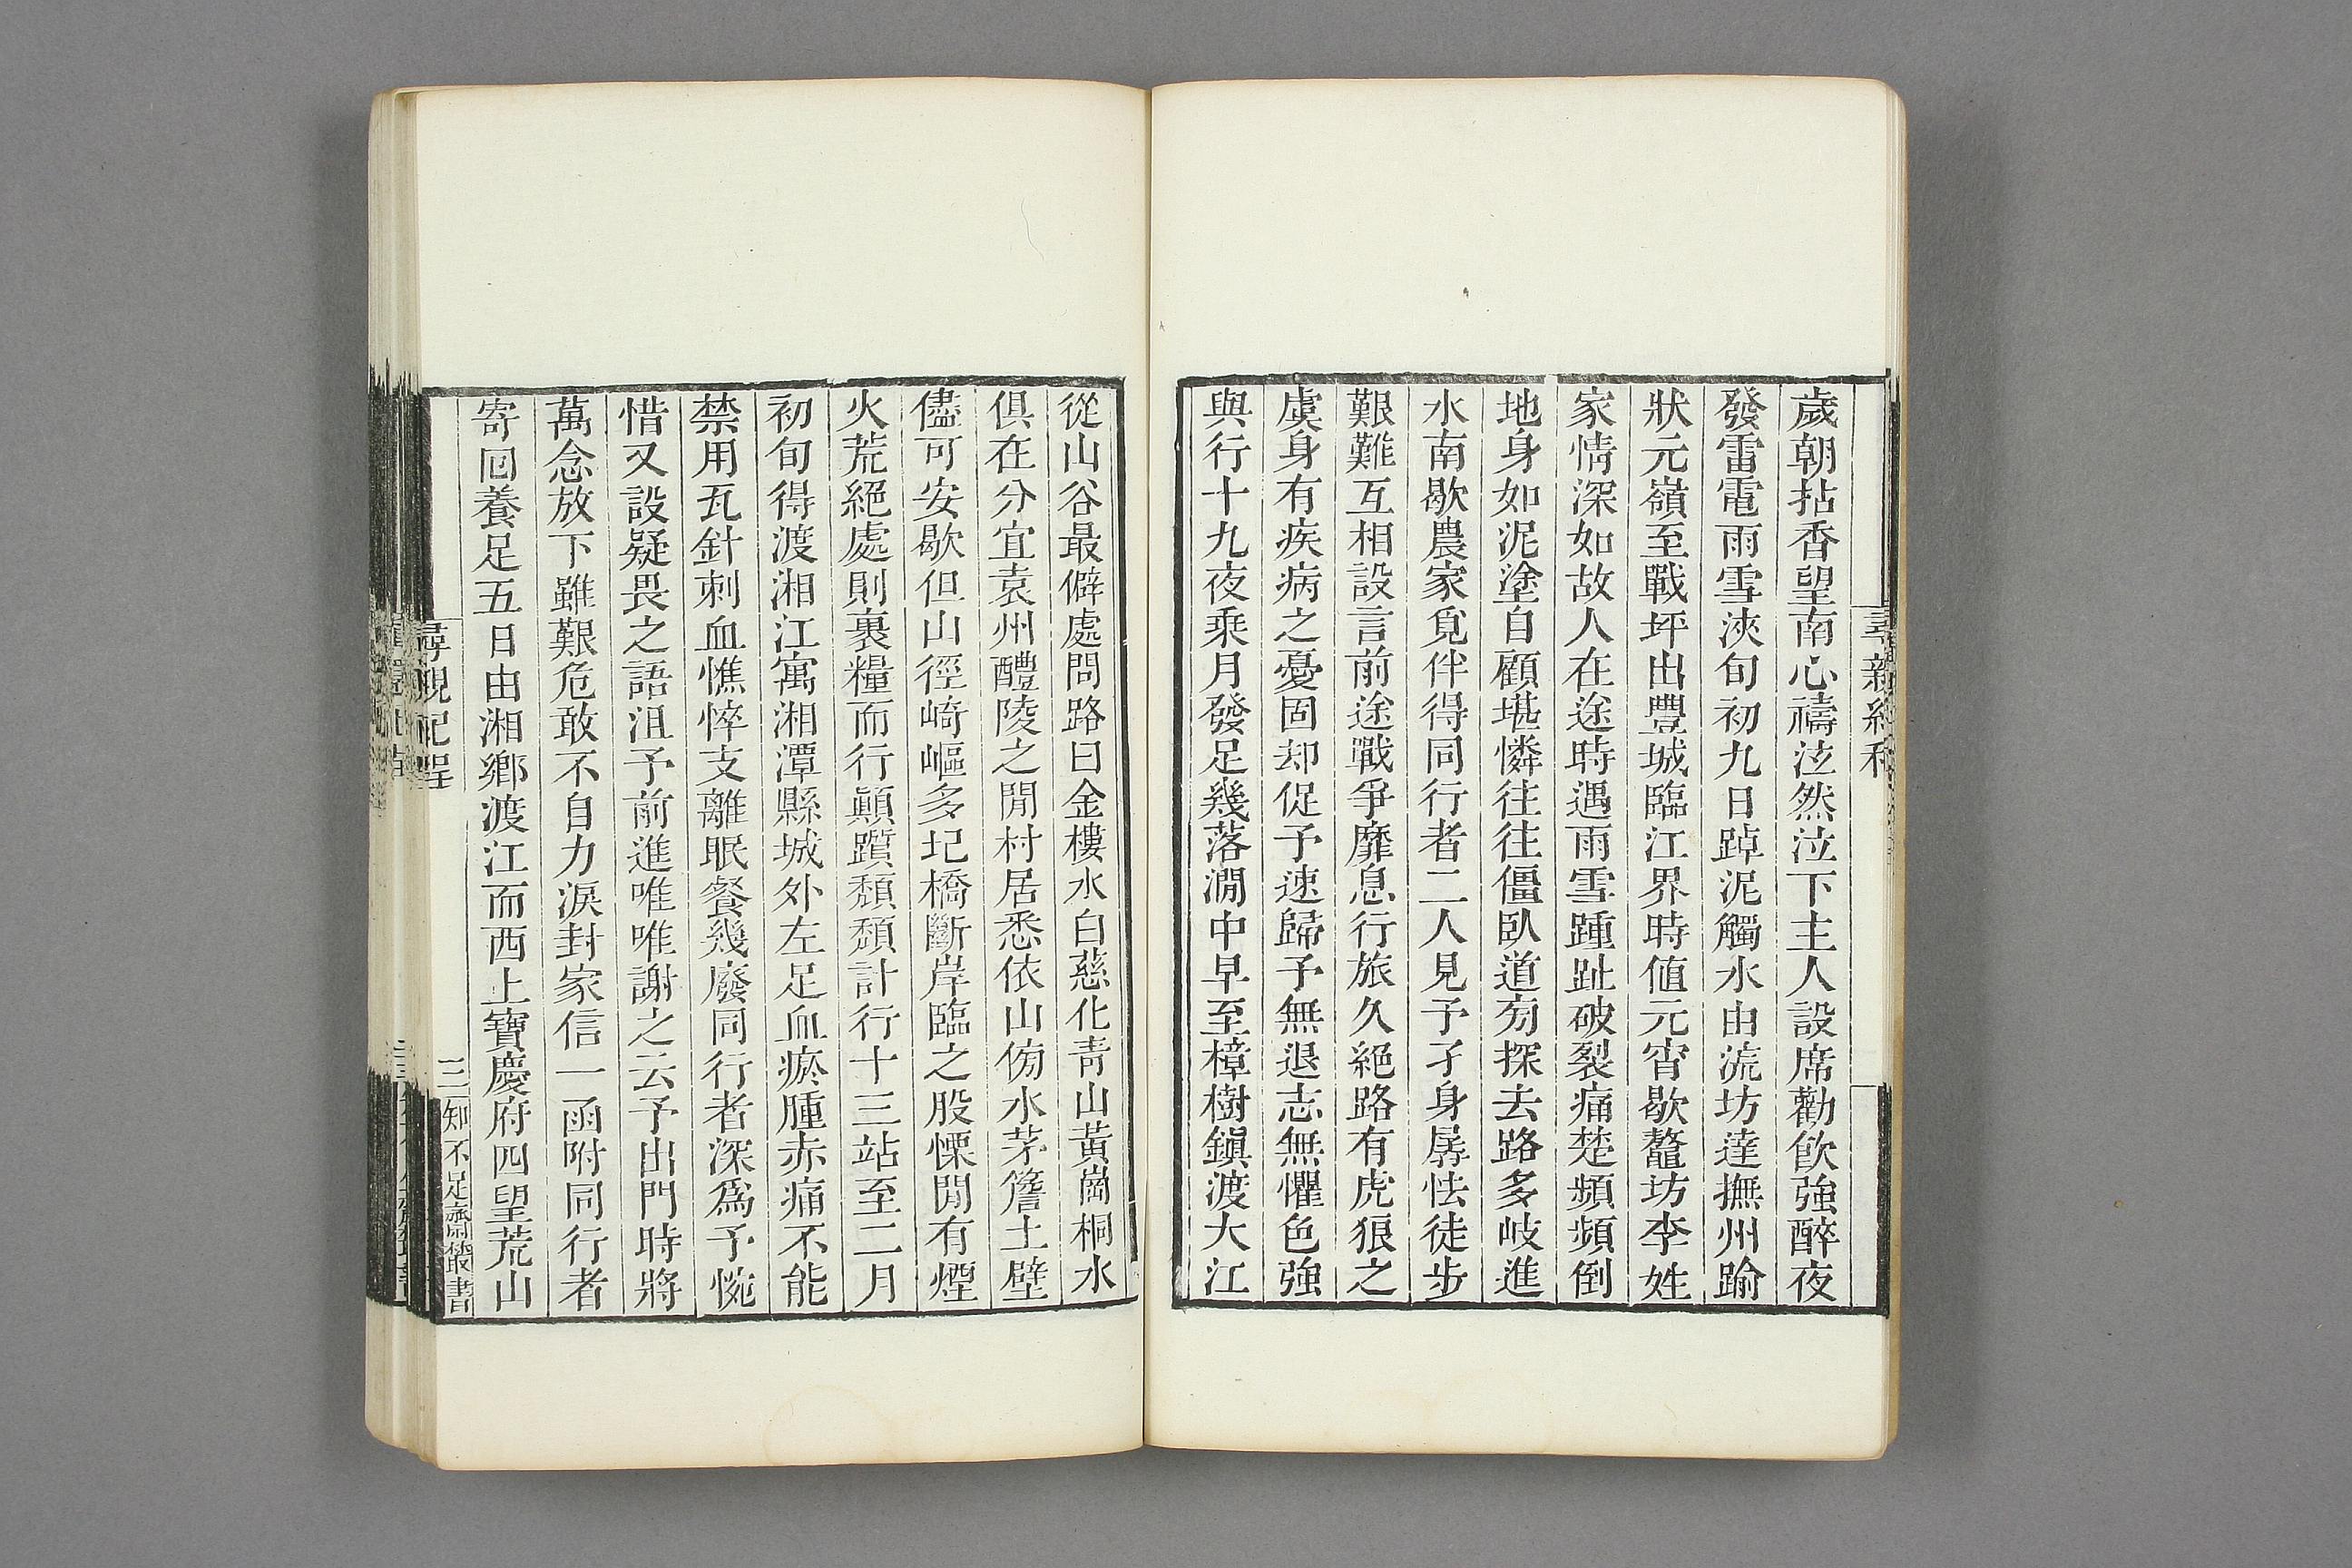 歲朝拈香望南心禱泫然泣下主人設席勸飲強醉夜
發雷電雨雪浹旬初九日踔泥觸水由流坊達撫州踰
狀元嶺至戰坪出豐城臨江界時值元宵歇鼇坊李姓
家情深如故人在途時遇雨雪踵趾破裂痛楚頻頻倒
地身如泥塗自顧堪憐往往僵臥道旁探去路多岐進
水南歇農家覓伴得同行者二人見予孑身孱怯徒步
艱難互相設言前途戰爭靡息行旅久絕路有虎狼之
虞身有疾病之憂固却促予速歸予無退志無懼色強
與行十九夜乗月發足幾落澗中早至樟樹鎮渡大江
從山谷最僻處問路曰金樓水白慈化青山黃崗桐水
俱在分宜袁州醴陵之閒村居悉依山傍水茅簷土壁
儘可安歇但山徑崎嶇多圮橋斷岸臨之股慄閒有煙
火荒絕處則裹糧而行顚躓頹頹計行十三站至二月
初旬得渡湘江寓湘潭縣城外左足血瘀腫赤痛不能
禁用瓦針刺血憔悴支離眠餐幾廢同行者深爲予惋
惜又設疑畏之語沮予前進唯唯謝之云予出門時將
萬念放下雖艱危敢不自力淚封家信一函附同行者
寄囘養足五日由湘鄉渡江而西上寶慶府四望荒山
尋親紀程
三
知不足齋叢書